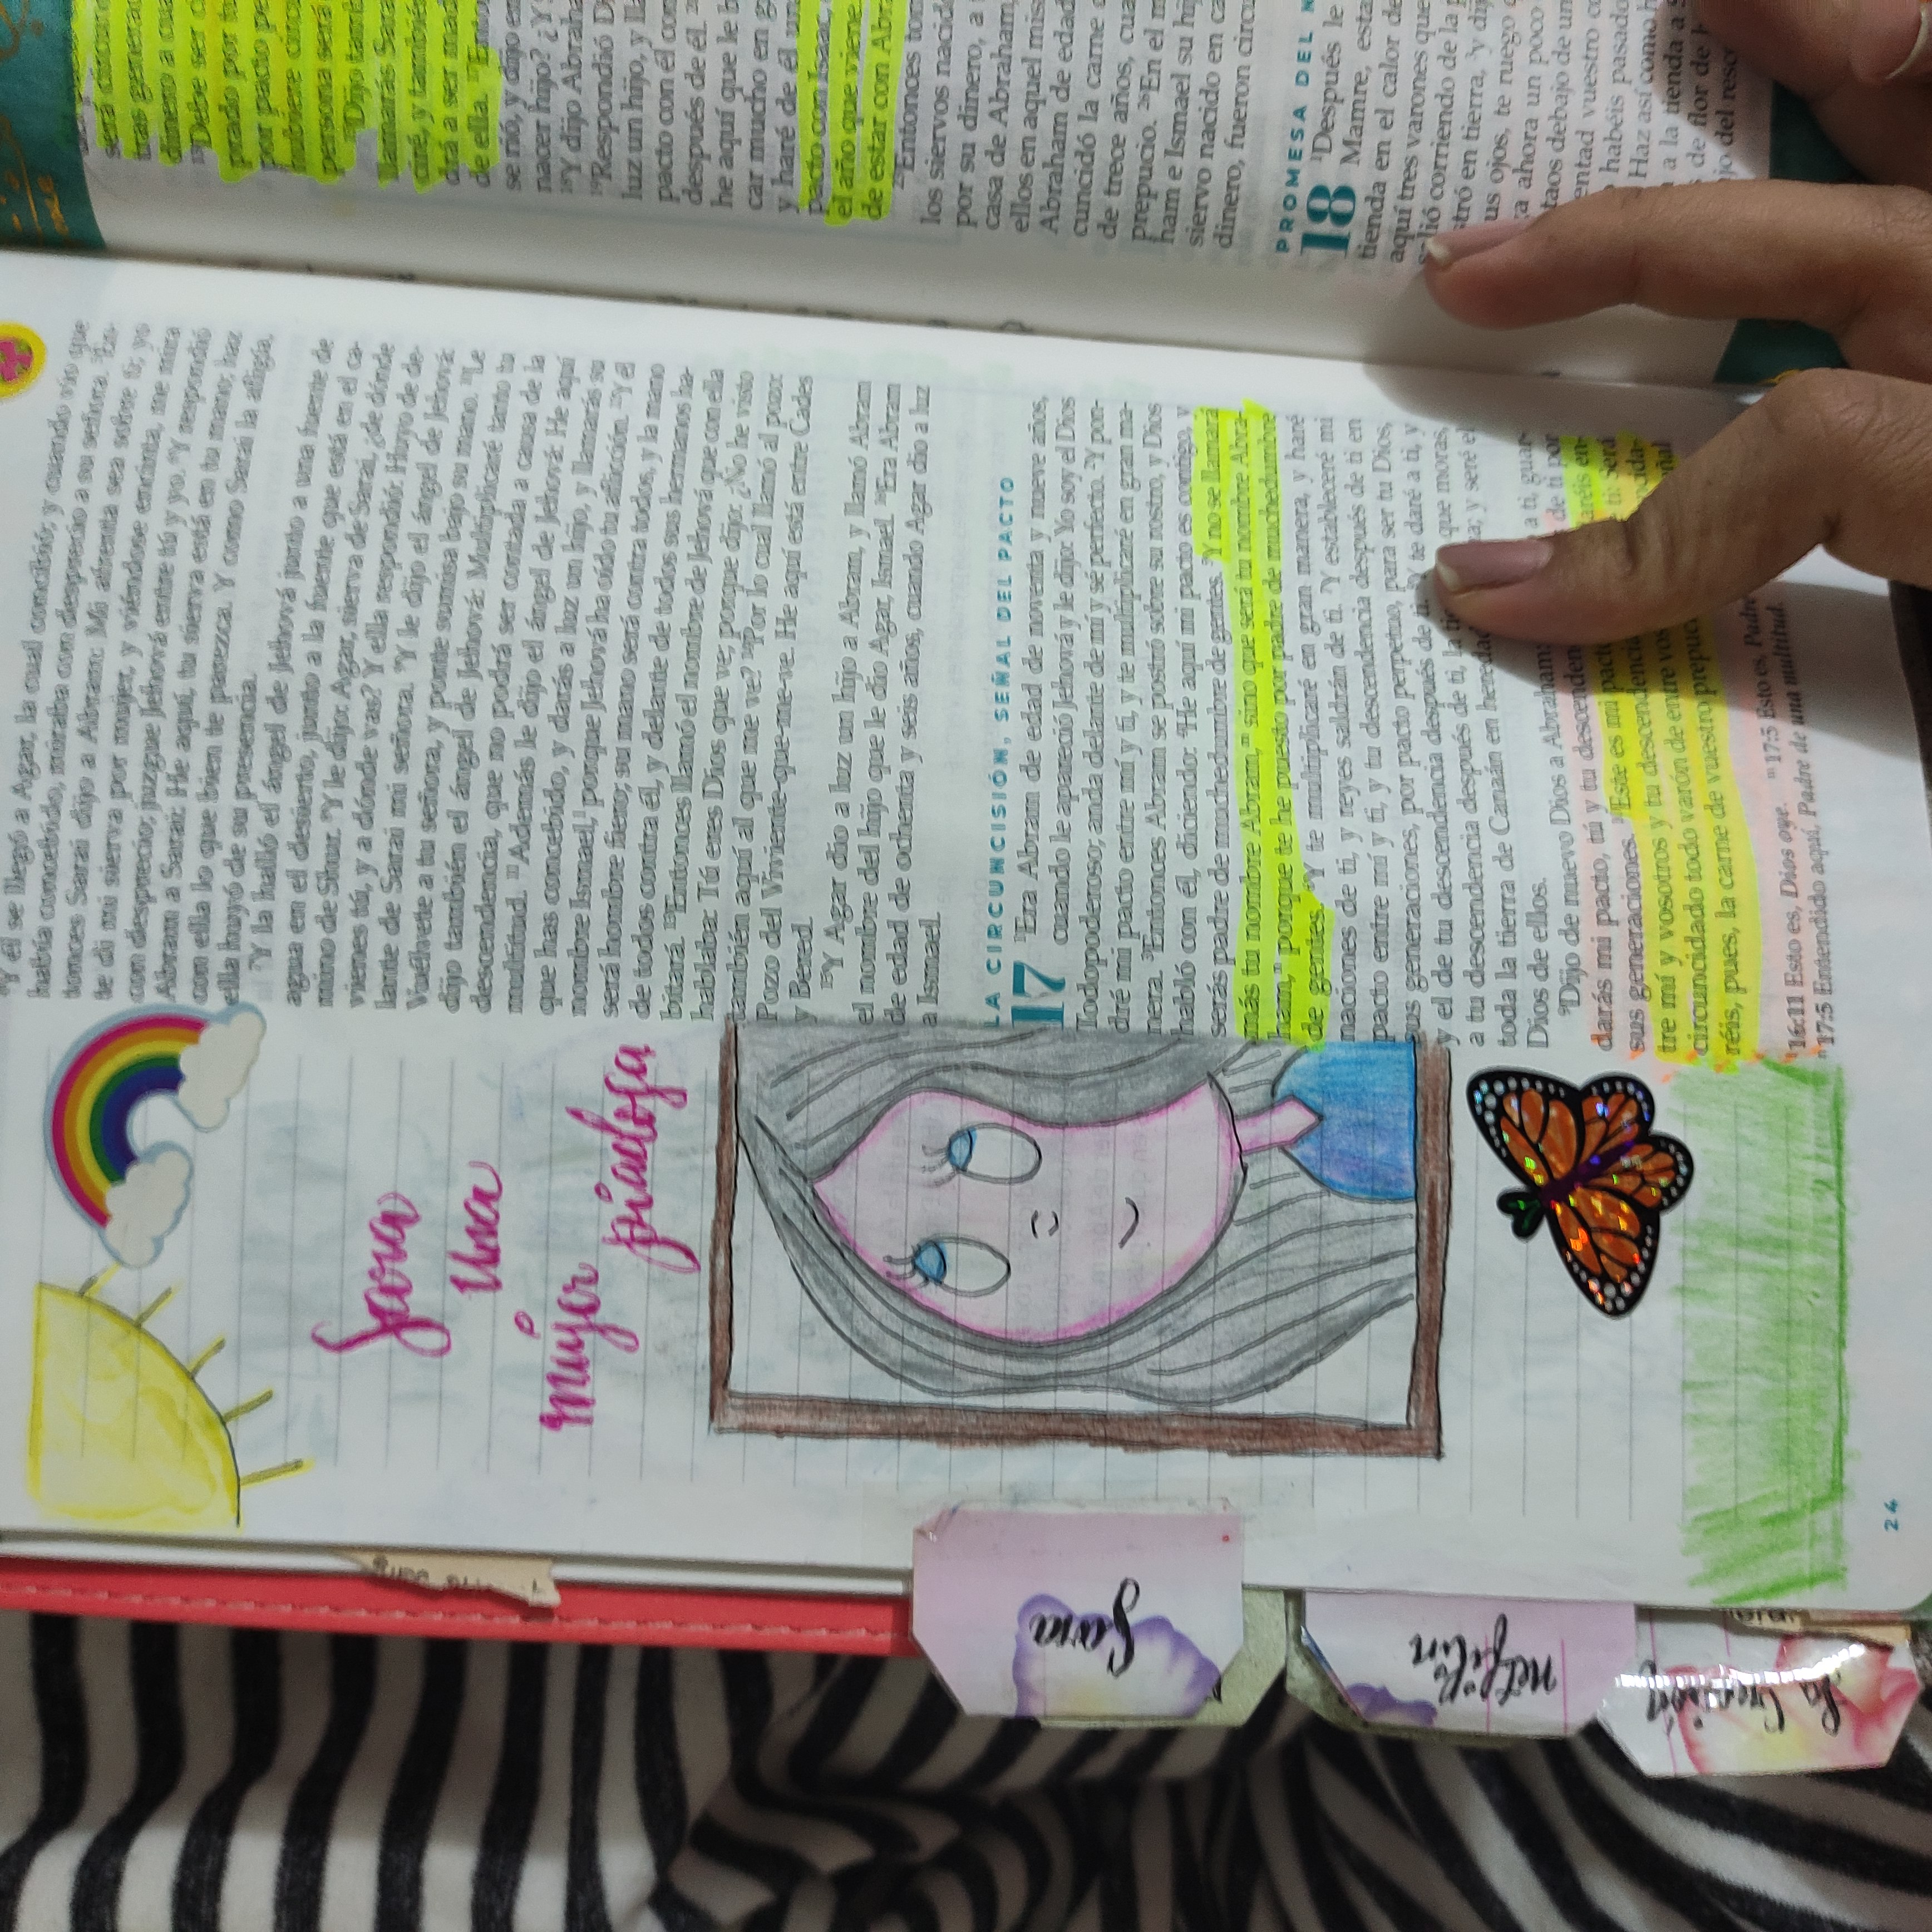 Sara
Una
mujer
piadosa
⁴Y él se llegó a Agar, la cual concibió; y cuando vio que
había concebido, miraba con desprecio a su señora. ⁵En-
tonces Sarai dijo a Abram: Mi afrenta sea sobre ti; yo
te di mi sierva por mujer, y viéndose encinta, me mira
con desprecio; juzgue Jehová entre tú y yo. ⁶Y respondió
Abram a Sarai: He aquí, tu sierva está en tu mano; haz
con ella lo que bien te parezca. Y como Sarai la afligía,
ella huyó de su presencia.
⁷Y la halló el ángel de Jehová junto a una fuente de
agua en el desierto, junto a la fuente que está en el ca-
mino de Shur. ⁸Y le dijo: Agar, sierva de Sarai, ¿de dónde
vienes tú, y a dónde vas? Y ella respondió: Huyo de de-
lante de Sarai mi señora. ⁹Y le dijo el ángel de Jehová:
Vuélvete a tu señora, y ponte sumisa bajo su mano. ¹⁰Le
dijo también el ángel de Jehová: Multiplicaré tanto tu
descendencia, que no podrá ser contada a causa de la
multitud. ¹¹Además le dijo el ángel de Jehová: He aquí
que has concebido, y darás a luz un hijo, y llamarás su
nombre Ismael, porque Jehová ha oído tu aflicción. ¹²Y él
será hombre fiero; su mano será contra todos, y la mano
de todos contra él, y delante de todos sus hermanos ha-
bitará. ¹³Entonces llamó el nombre de Jehová que con ella
hablaba: Tú eres Dios que ve; porque dijo: ¿No he visto
también aquí al que me ve? ¹⁴Por lo cual llamó al pozo:
Pozo del Viviente-que-me-ve. He aquí está entre Cades
y Bered.
¹⁵Y Agar dio a luz un hijo a Abram, y llamó Abram
el nombre del hijo que le dio Agar, Ismael. ¹⁶Era Abram
de edad de ochenta y seis años, cuando Agar dio a luz
a Ismael.
LA CIRCUNCISIÓN, SEÑAL DEL PACTO
17 ¹Era Abram de edad de noventa y nueve años,
cuando le apareció Jehová y le dijo: Yo soy el Dios
Todopoderoso; anda delante de mí y sé perfecto. ²Y pon-
dré mi pacto entre mí y ti, y te multiplicaré en gran ma-
nera. ³Entonces Abram se postró sobre su rostro, y Dios
habló con él, diciendo: ⁴He aquí mi pacto es contigo, y
serás padre de muchedumbre de gentes. ⁵Y no se llamará
más tu nombre Abram, ᵐ sino que será tu nombre Abra-
ham, ⁿ porque te he puesto por padre de muchedumbre
de gentes. ⁶Y te multiplicaré en gran manera, y haré
naciones de ti, y reyes saldrán de ti. ⁷Y estableceré mi
pacto entre mí y ti, y tu descendencia después de ti en
sus generaciones, por pacto perpetuo, para ser tu Dios,
y el de tu descendencia después de ti. ⁸Y te daré a ti, y
a tu descendencia después de ti, la que moras,
toda la tierra de Canaán en heredad y seré el
Dios de ellos.
⁹Dijo de nuevo Dios a Abraham: a ti, guar-
darás mi pacto, tú y tu descendencia de ti por
sus generaciones. ¹⁰Este es mi pacto,
tre mí y vosotros y tu descendencia
circuncidado todo varón de entre vosotros.
réis, pues, la carne de vuestro prepucio
16:11 Esto es, Dios oye. ᵐ 17:5 Esto es, Padre
ⁿ 17:5 Entendido aquí, Padre de una multitud.
24
Sara
nefilin
la Creación
de ella. ¹⁷E
se rió, y dijo en
nacer hijo? ¿Y
¹⁸Y dijo Abraha
¹⁹Respondió D
luz un hijo, y lla
pacto con él con
después de él. ²⁰
he aquí que le b
car mucho en g
y haré de él un
pacto con Isaac,
el año que viene
de estar con Abra
²³Entonces tom
los siervos nacid
por su dinero, a
casa de Abraham,
ellos en aquel mis
Abraham de edad
cuncidó la carne
de trece años, cua
prepucio. ²⁶En el m
ham e Ismael su hij
siervo nacido en ca
dinero, fueron circu
PROMESA DEL N
18 ¹Después le
Mamre, esta
tienda en el calor de
aquí tres varones que
salió corriendo de la